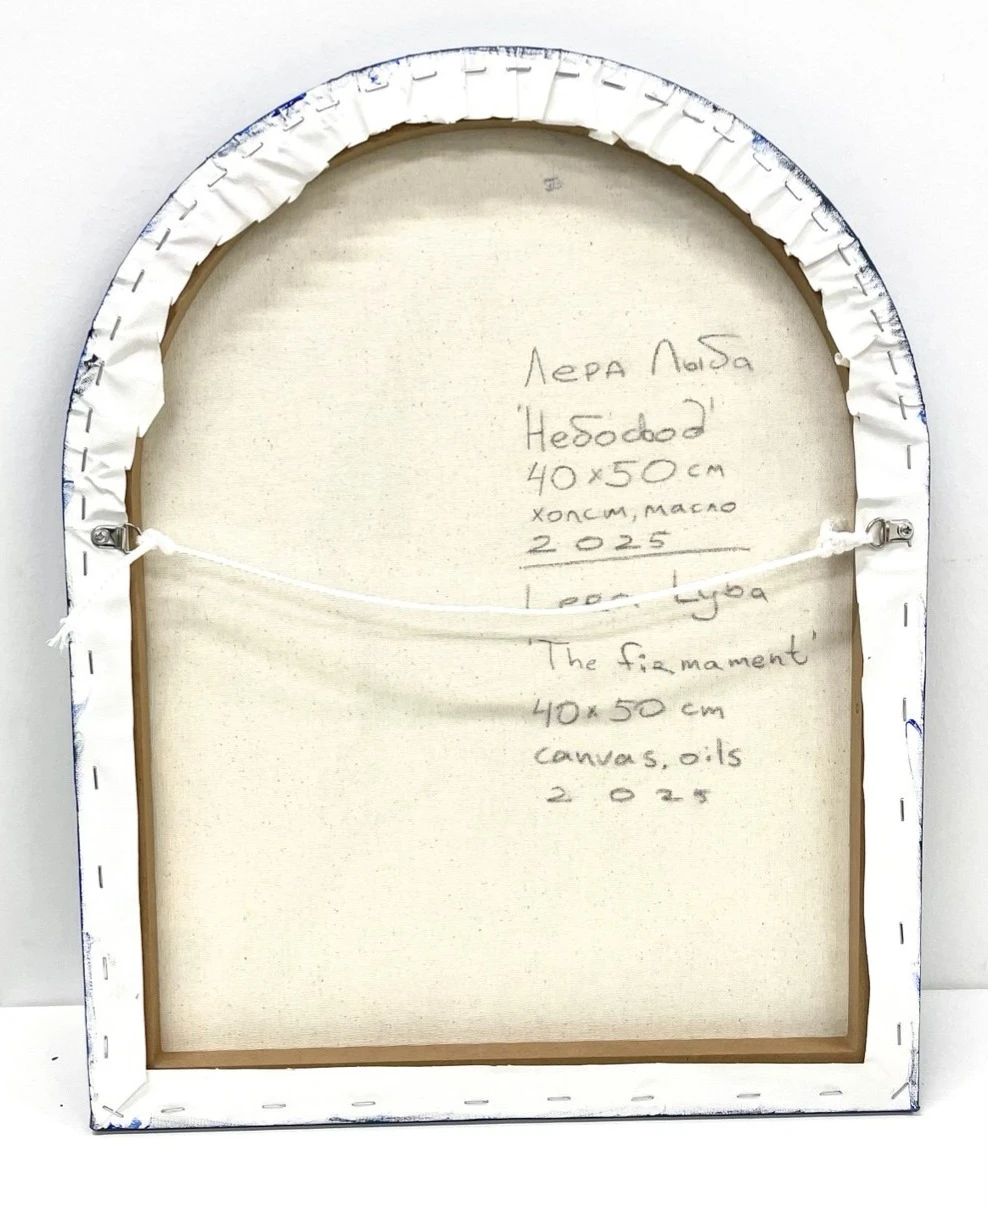 Лера Лыба
'Небосвод'
40×50 см
холст, масло
2025
Lera Lyba
'The firmament'
40×50 cm
canvas, oils
2025